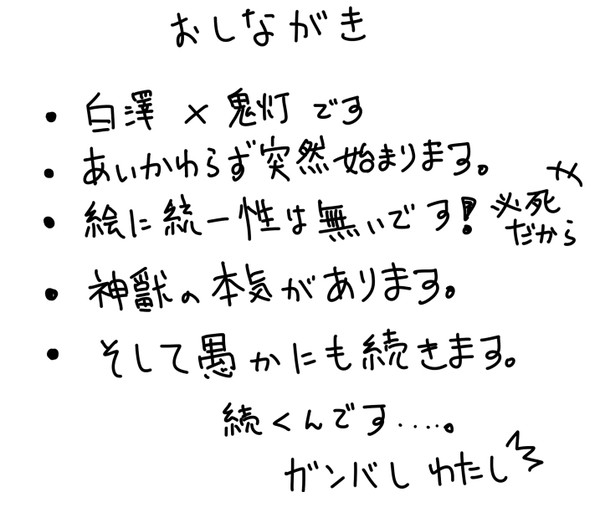 おしながき
・白澤×鬼灯です
・あいかわらず突然始まります。
・絵に統一性は無いです!必死だから
・神獣の本気があります。
・そして愚かにも続きます。
続くんです....。
ガンバレわたし